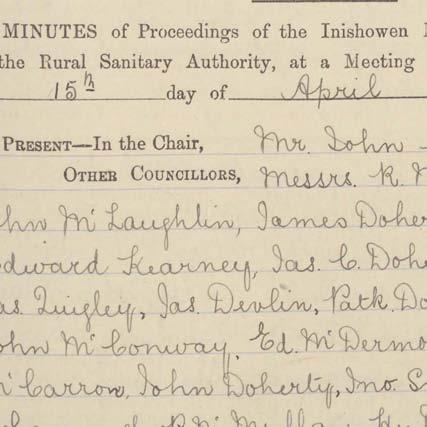 MINUTES of Proceedings of the Inishowen
the Rural Sanitary Authority, at a Meeting
15th day of April
PRESENT—In the Chair, Mr. John
OTHER COUNCILLORS, Messrs. R.
John McLaughlin, James Doher
Edward Kearney, Jas. C. Dohe
Jas. Quigley, Jas. Devlin, Patk. Do
John McConway, Ed. McDermo
McCarron, John Doherty, Jno. S